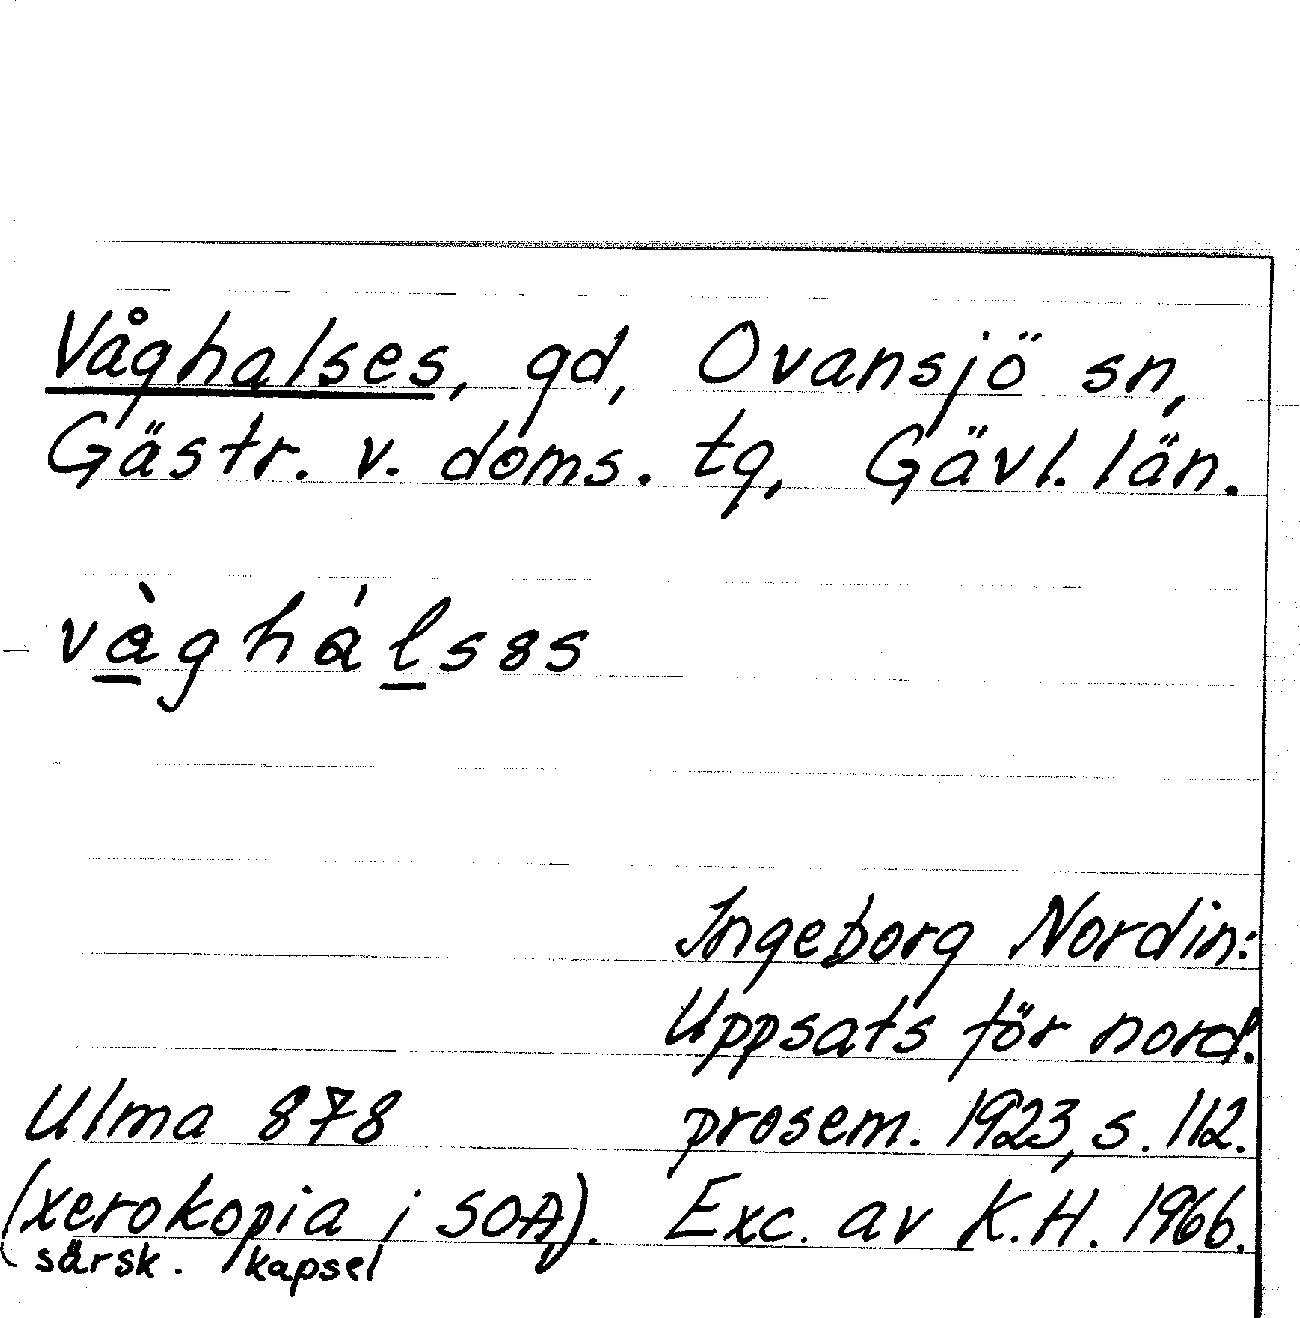 Våghalses, gd, Ovansjö sn,
Gästr. v. doms. tg, Gävl. län.
våghálsəs
Ingeborg Nordin:
Uppsats för nord.
prosem. 1923, s. 112.
Ulma 878
(xerokopia i SOA).
särsk. kapsel
Exc. av K.H. 1966.